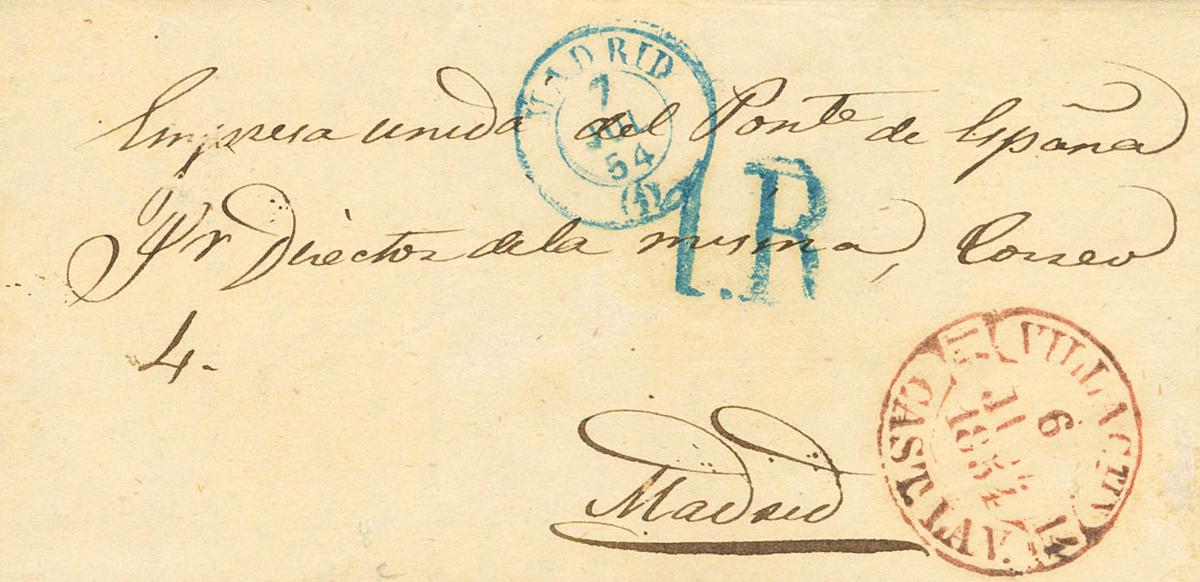 MADRID
7
JUL
54
(1)
Empresa unida del Ponte de España
Sr Director de la misma, Correo
4.
1.R
Madrid
6
JL
1854
CAST. LA V.